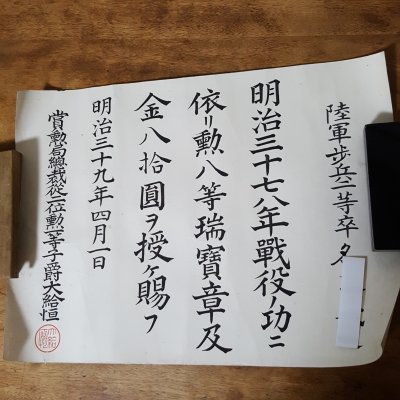 陸軍歩兵一等卒
明治三十七八年戰役ノ功ニ
依リ勲八等瑞寶章及
金八拾圓ヲ授ケ賜フ
明治三十九年四月一日
賞勲局總裁從二位勲一等子爵大給恒